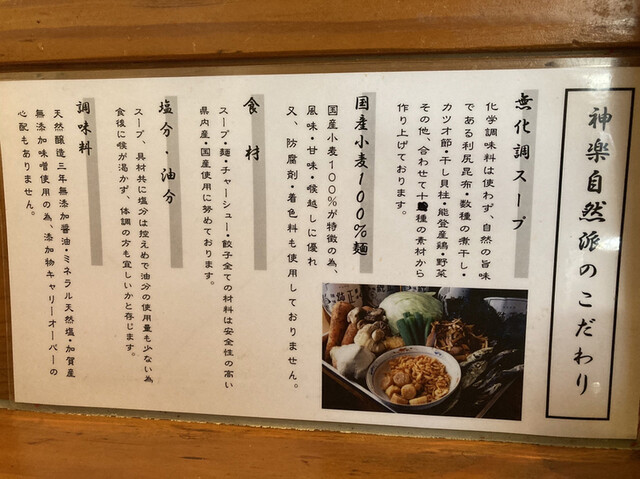 神楽自然派のこだわり
無化調スープ
化学調味料は使わず、自然の旨味
である利尻昆布・数種の煮干し・
カツオ節・干し貝柱・能登産鶏・野菜
その他、合わせて十種の素材から
作り上げております。
国産小麦100%麺
国産小麦100%が特徴の為、
風味・甘味・喉越しに優れ
又、防腐剤・着色料も使用しておりません。
食材
スープ・麺・チャーシュー・餃子全ての材料は安全性の高い
県内産・国産使用に努めております。
塩分・油分
スープ、具材共に塩分は控えめで油分の使用量も少ない為
食後に喉が渇かず、体調の方も宜しいかと存じます。
調味料
天然醸造三年無添加醤油・ミネラル天然塩・加賀産
無添加味噌使用の為、添加物キャリーオーバーの
心配もありません。